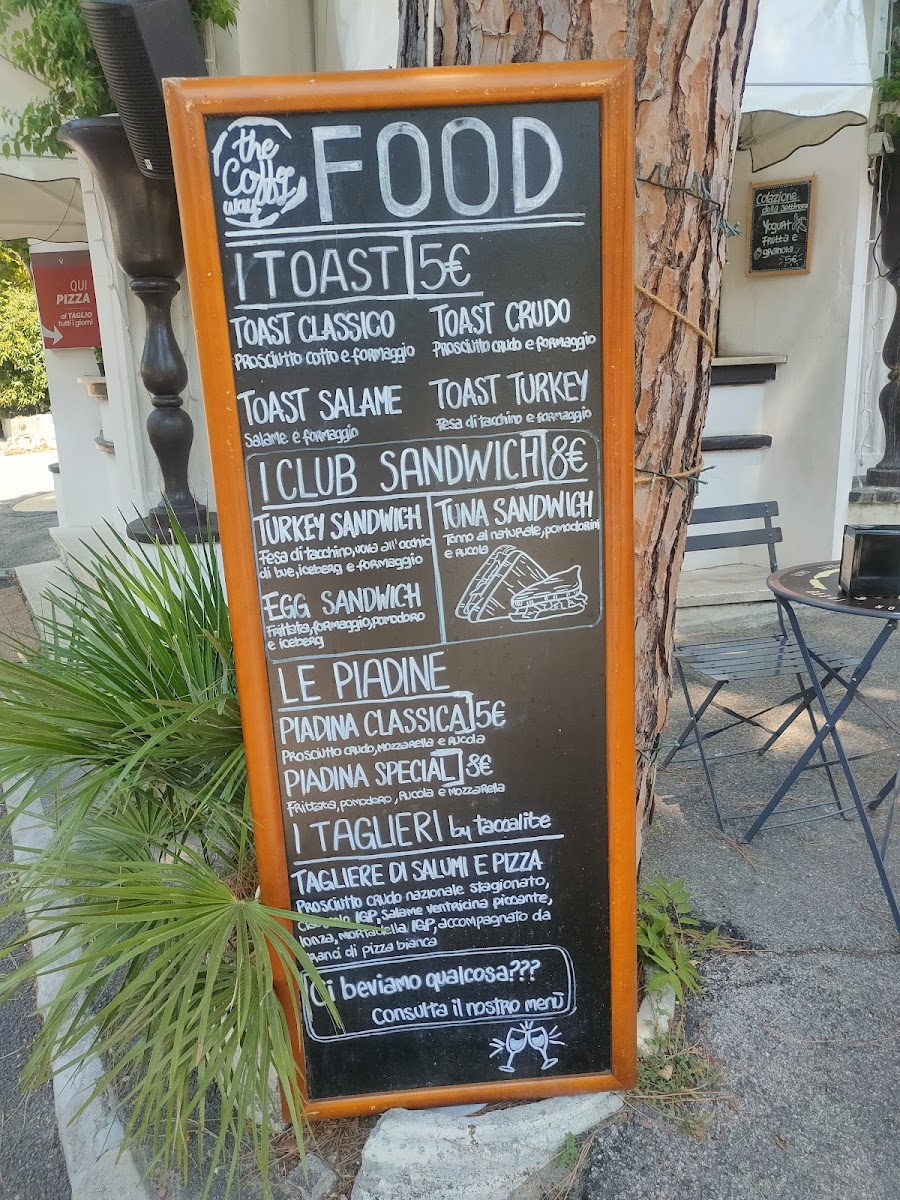 the
Coffee
way
FOOD
I TOAST 5€
TOAST CLASSICO
Prosciutto cotto e formaggio
TOAST CRUDO
Prosciutto crudo e formaggio
TOAST SALAME
Salame e formaggio
TOAST TURKEY
Fesa di tacchino e formaggio
I CLUB SANDWICH 8€
TURKEY SANDWICH
Fesa di tacchino, uova all'occhio
di bue, iceberg e formaggio
EGG SANDWICH
Frittata, formaggio, pomodoro
e iceberg
TUNA SANDWICH
Tonno al naturale, pomodorini
e rucola
LE PIADINE
PIADINA CLASSICA 5€
Prosciutto crudo, mozzarella e rucola
PIADINA SPECIAL 8€
Frittata, pomodoro, rucola e mozzarella
I TAGLIERI by taccalite
TAGLIERE DI SALUMI E PIZZA
Prosciutto crudo nazionale stagionato,
IGP, salame ventricina piccante,
lonza, mortadella IGP, accompagnato da
di pizza bianca
Ci beviamo qualcosa???
Consulta il nostro menù
QUI
PIZZA
al TAGLIO
tutti i giorni
Colazione
della settimana
Yogurt
frutta e
granola
5€